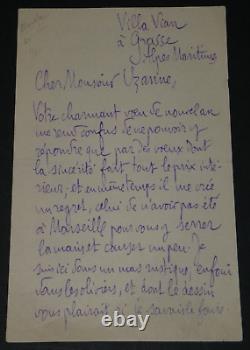 Villa Vian
à Grasse
Alpes Maritimes
Cher Monsieur Uzanne,
Votre charmant vœu de nouvel an
me rend confus de ne pouvoir y
répondre que par des vœux dont
la sincérité fait tout le prix inté-
rieur, et en même temps il me crée
un regret, celui de n'avoir pas été
à Marseille pour vous y serrer
la main et causer un peu. Je
suis ici dans un mas rustique, enfoui
sous les oliviers, et dont le dessin
vous plairait si je savais le faire
ebay